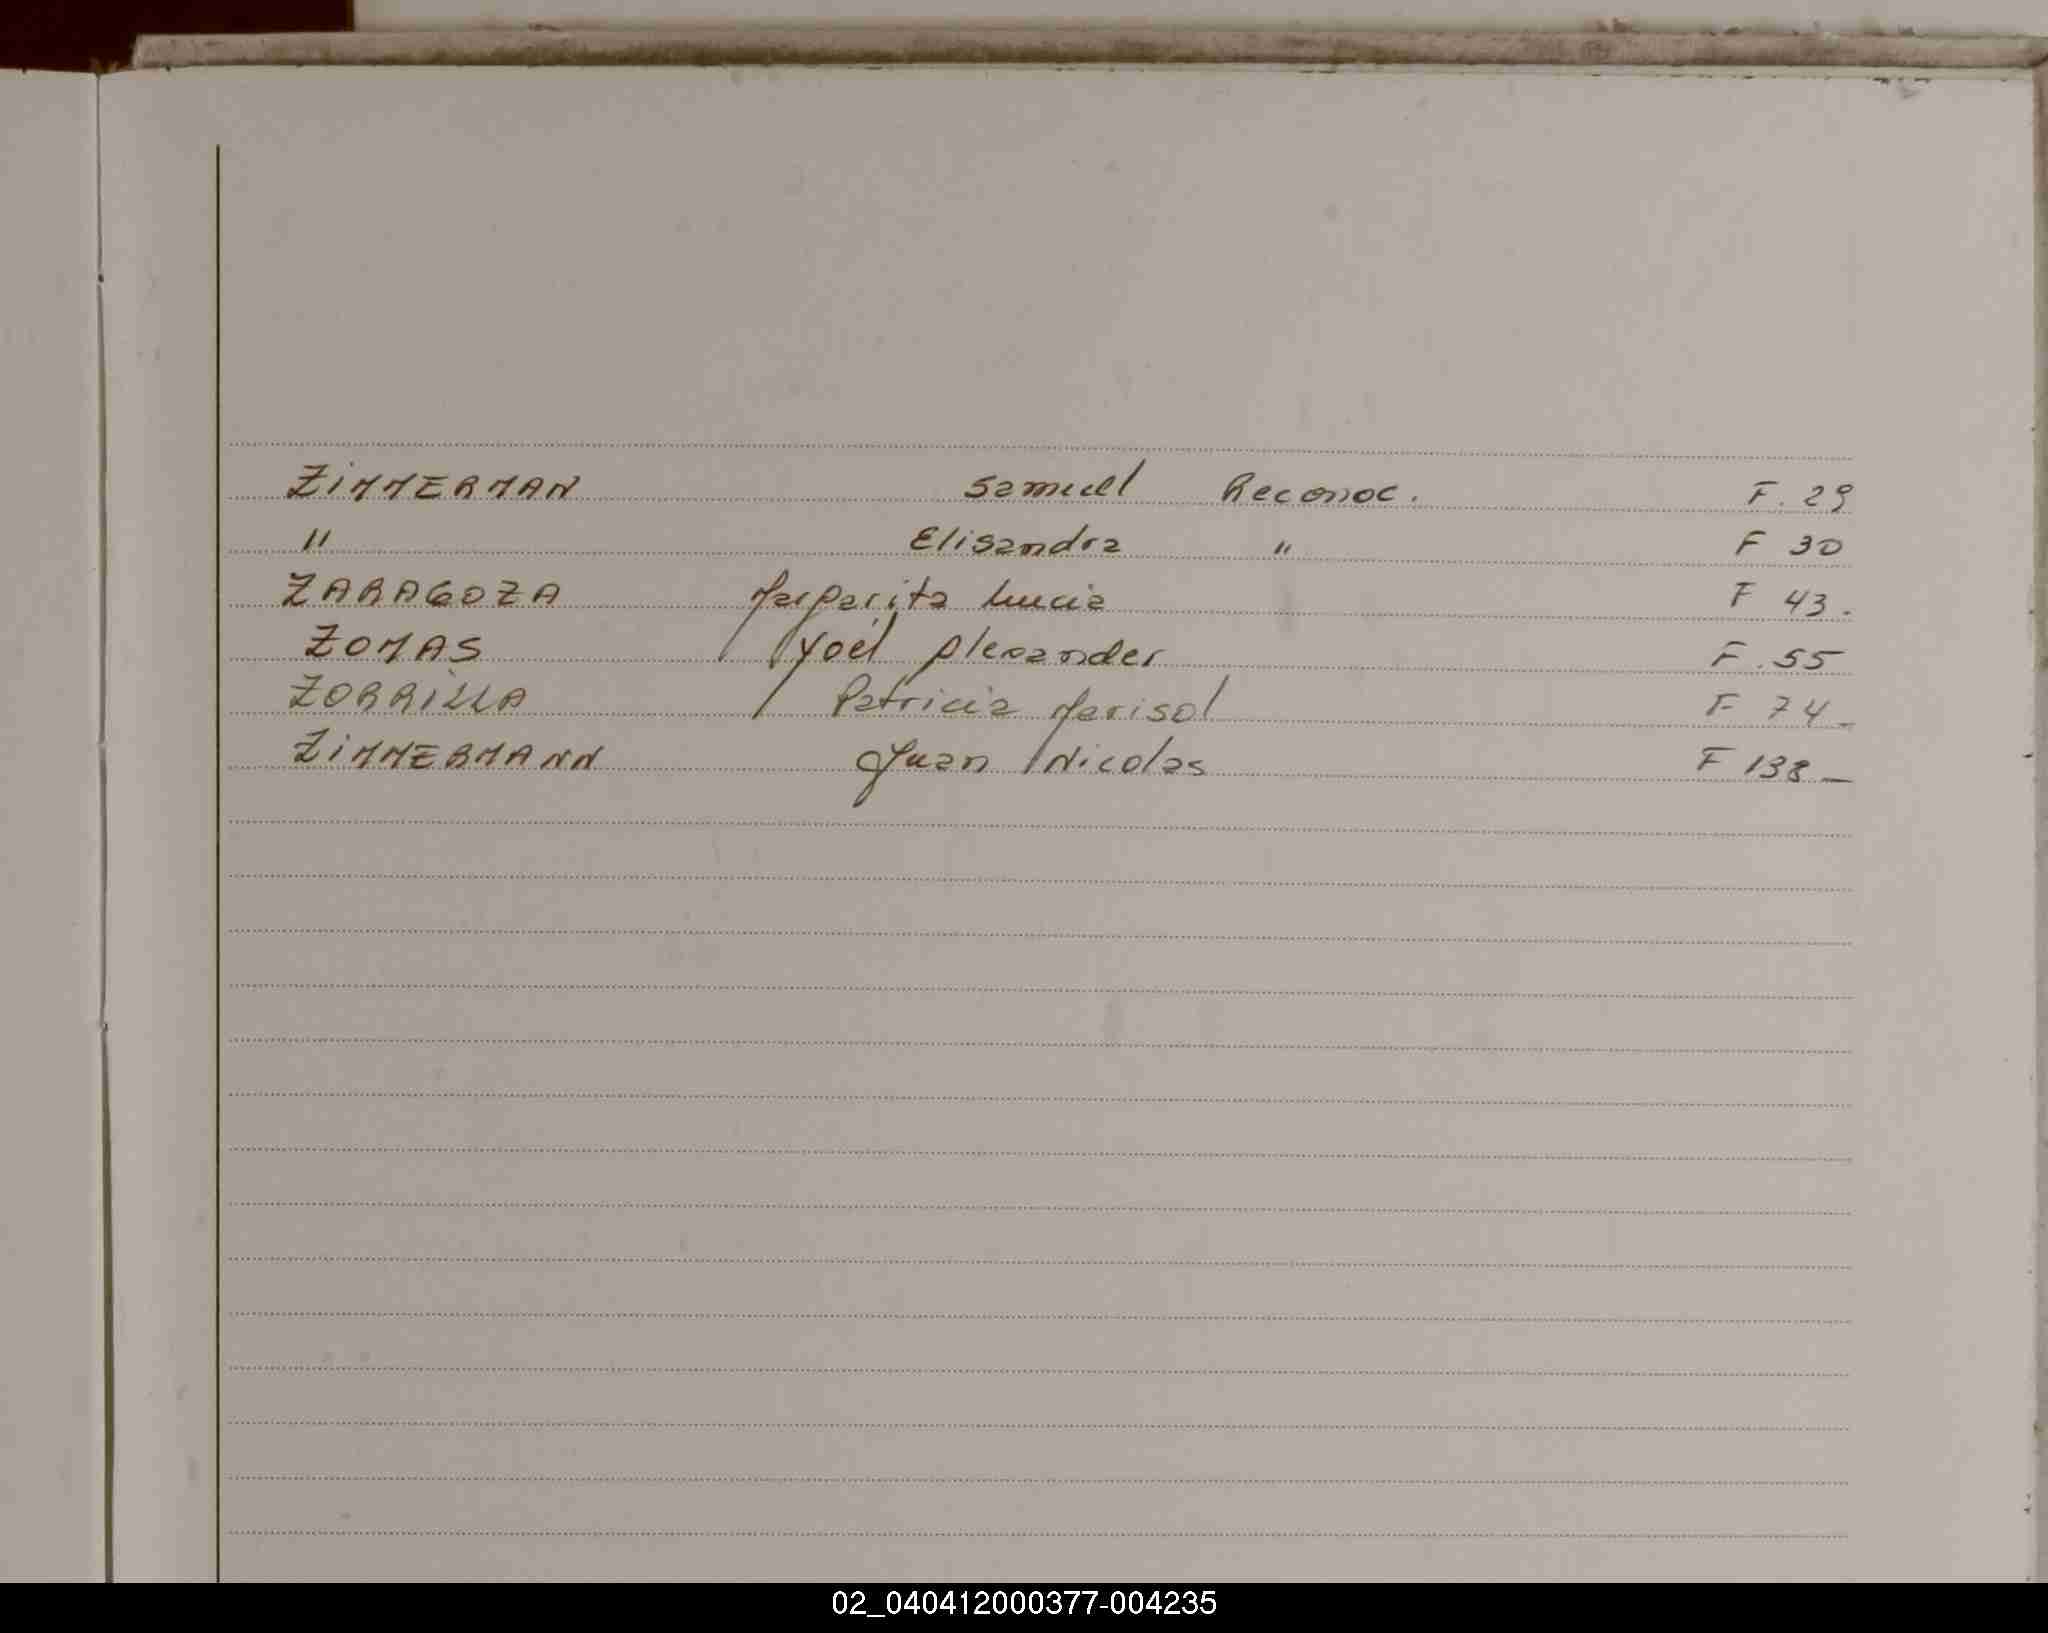 ZIMMERMAN Samuel Reconoc. F. 29
" Elisandra " F 30
ZARAGOZA Margarita Lucia F 43.
ZOMAS Yoel Alexander F. 55
ZORRILLA Patricia Marisol F 74_
ZIMMERMANN Juan Nicolas F 138_
02_040412000377-004235